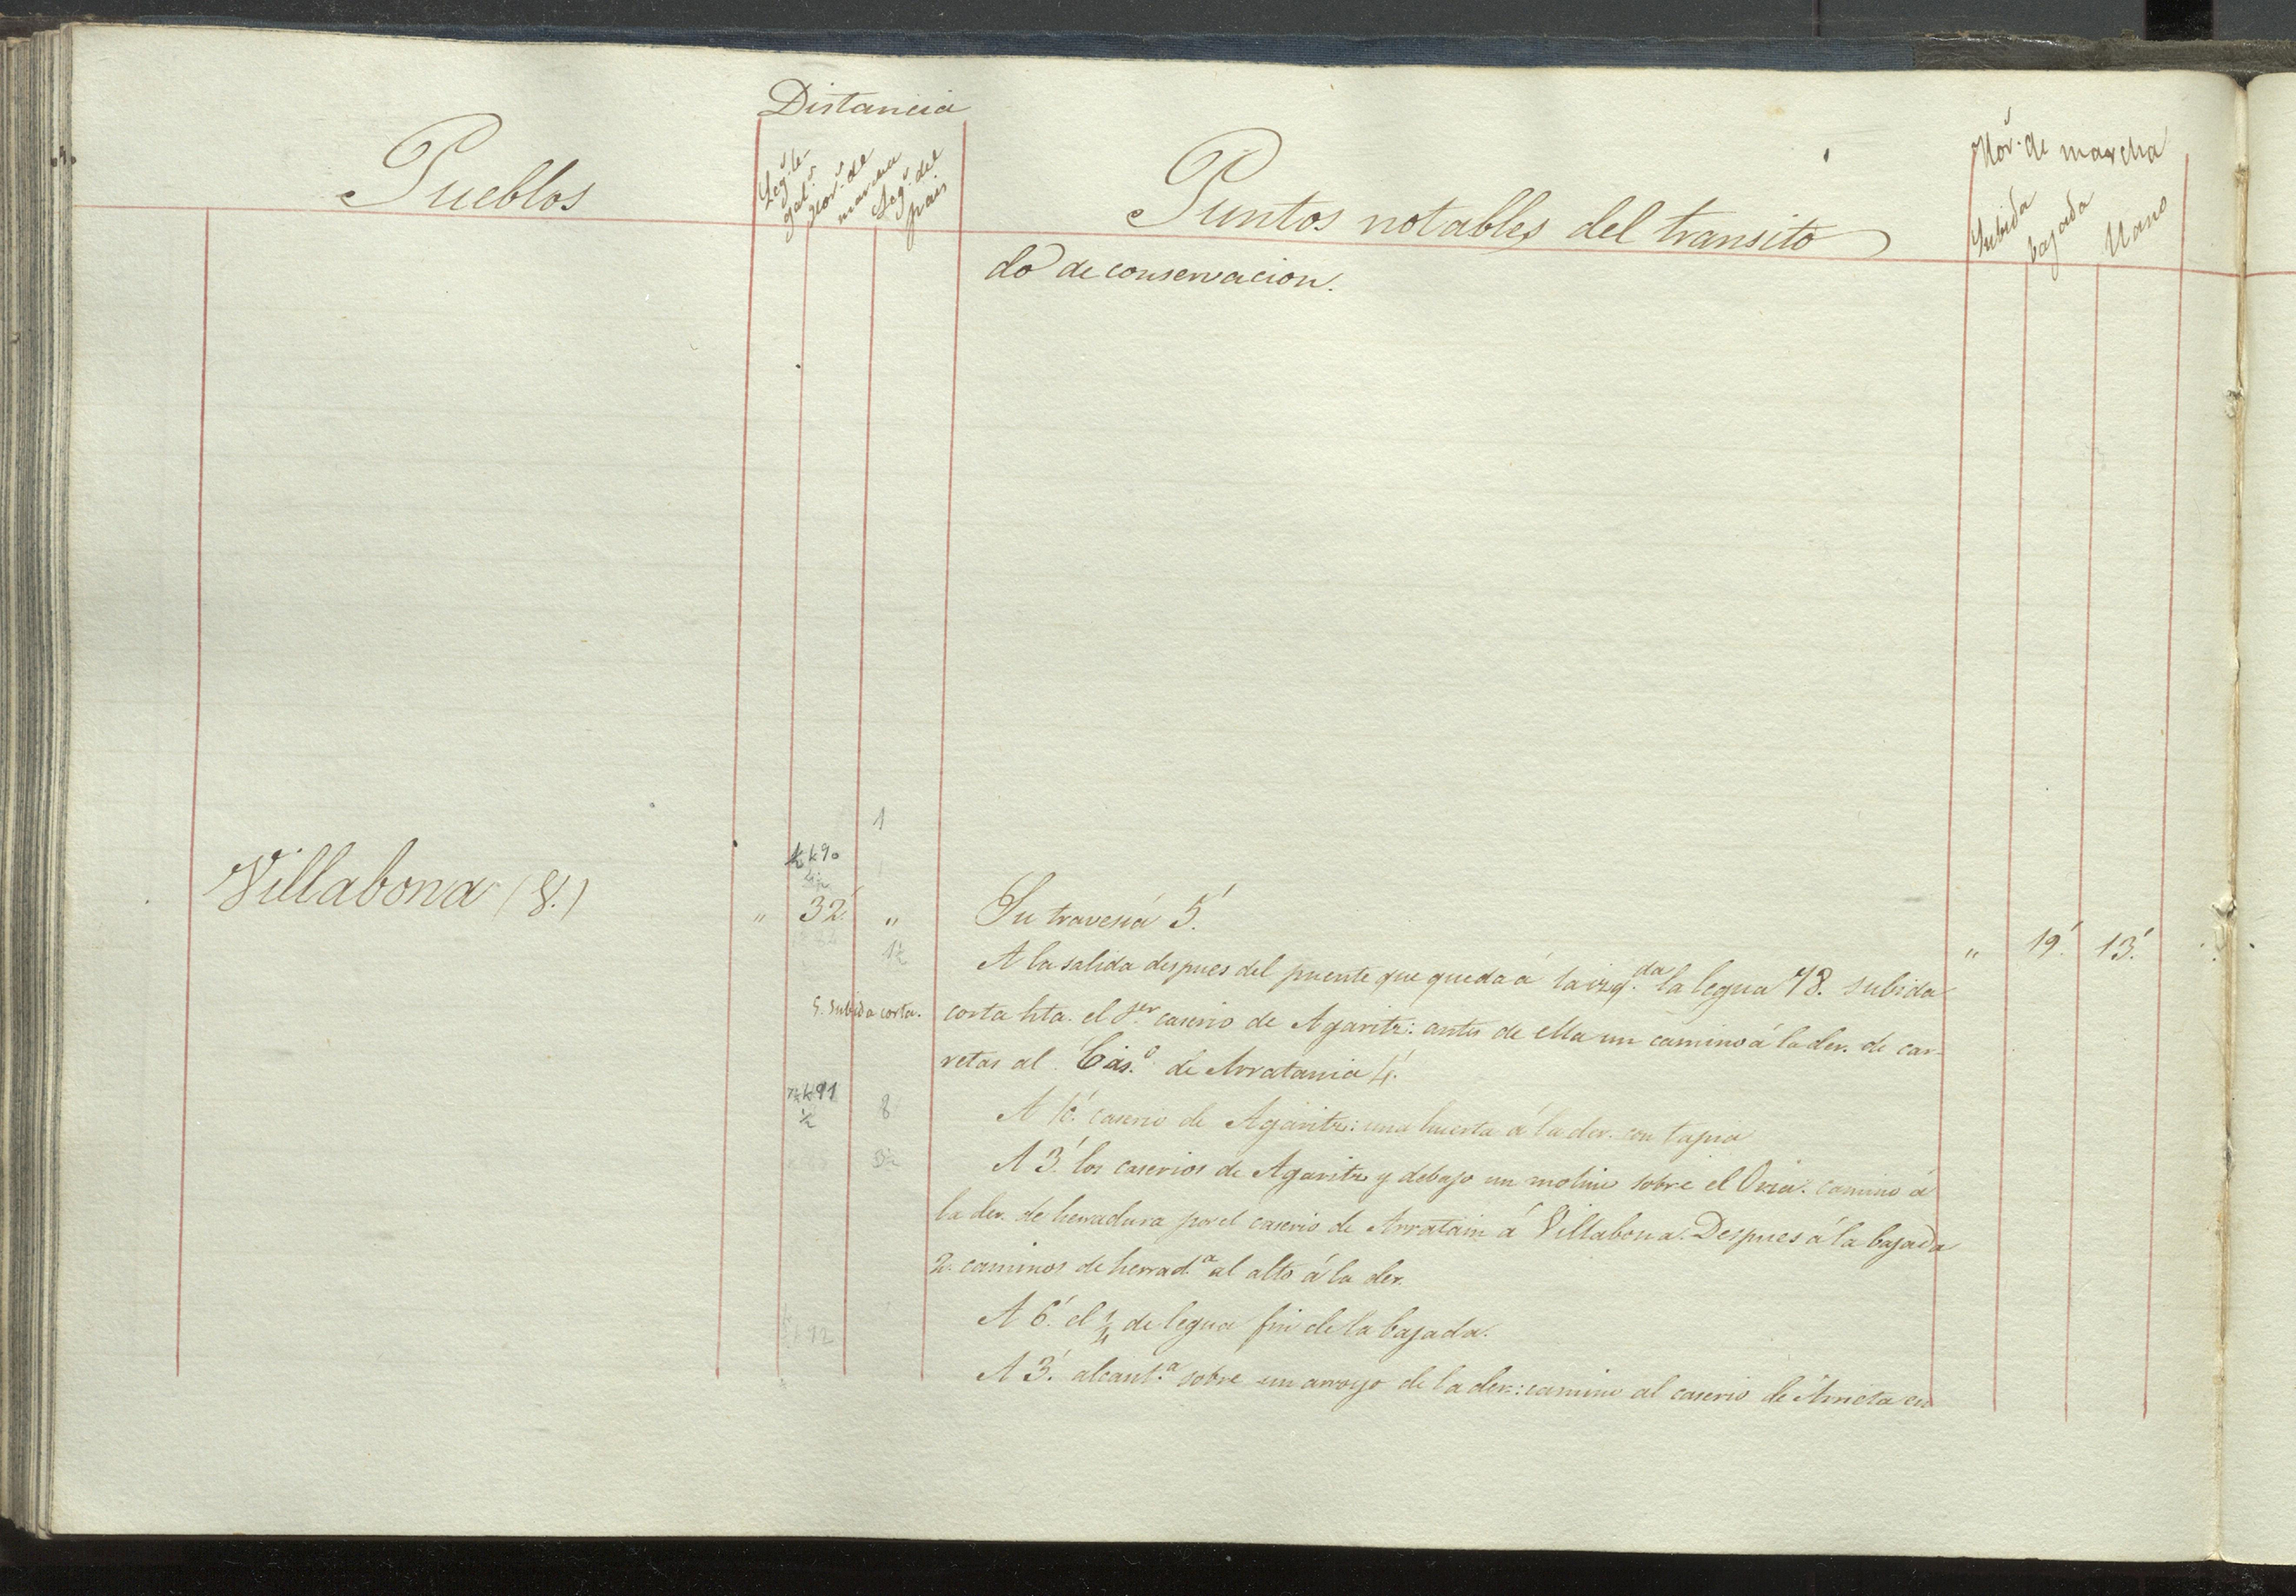 Distancia
Pueblos
Leg.s le-
gal.s
Hor.s de
marcha
Leg.s del
pais
Puntos notables del transito
Hor.s de marcha
Subida
bajada
llano
do de conservacion.
1
k 90
Villabona (8.)
" 32' "
Su travesia 5'.
" 19'. 13'.
1½
A la salida despues del puente que queda á la izq.da la legua 78. subida
5. subida corta.
corta hta. el 1.er caserio de Agaritz: antes de ella un camino á la der. de car-
retas al Cas.o de Arratania 4'.
k 91
½
8
A caserio de Agaritz: una huerta á la der. con tapia
3½
A 3'. los caserios de Agaritz y debajo un molino sobre el Oria: camino á
la der. de herradura por el caserio de Arratain á Villabona. Despues á la bajada
2. caminos de herrad.a al alto á la der.
A 6'. el ¼ de legua fin de la bajada.
k 92
A 3'. alcant.a sobre un arroyo de la der.: camino al caserio de Arrieta en